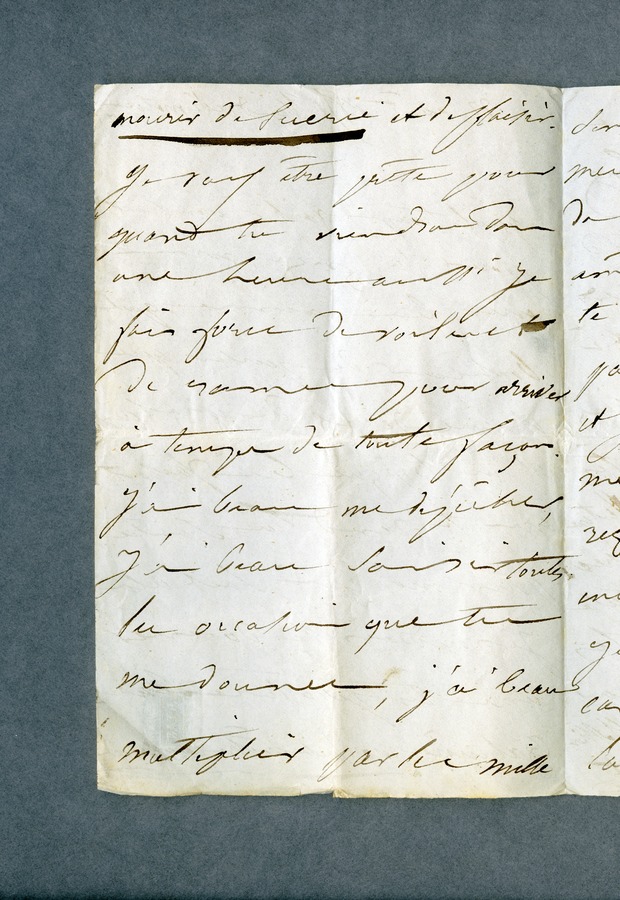 mourir de et de plaisir.
Je vais être prête pour
quand tu viendras dans
une heure aussi je
fais force de voiles et
de rames pour arriver
à temps de toute façon.
J'ai beau me dépêcher,
J'ai beau saisir toutes
les occasions que tu
me donnes, j'ai beau
multiplier par les mille
te
et